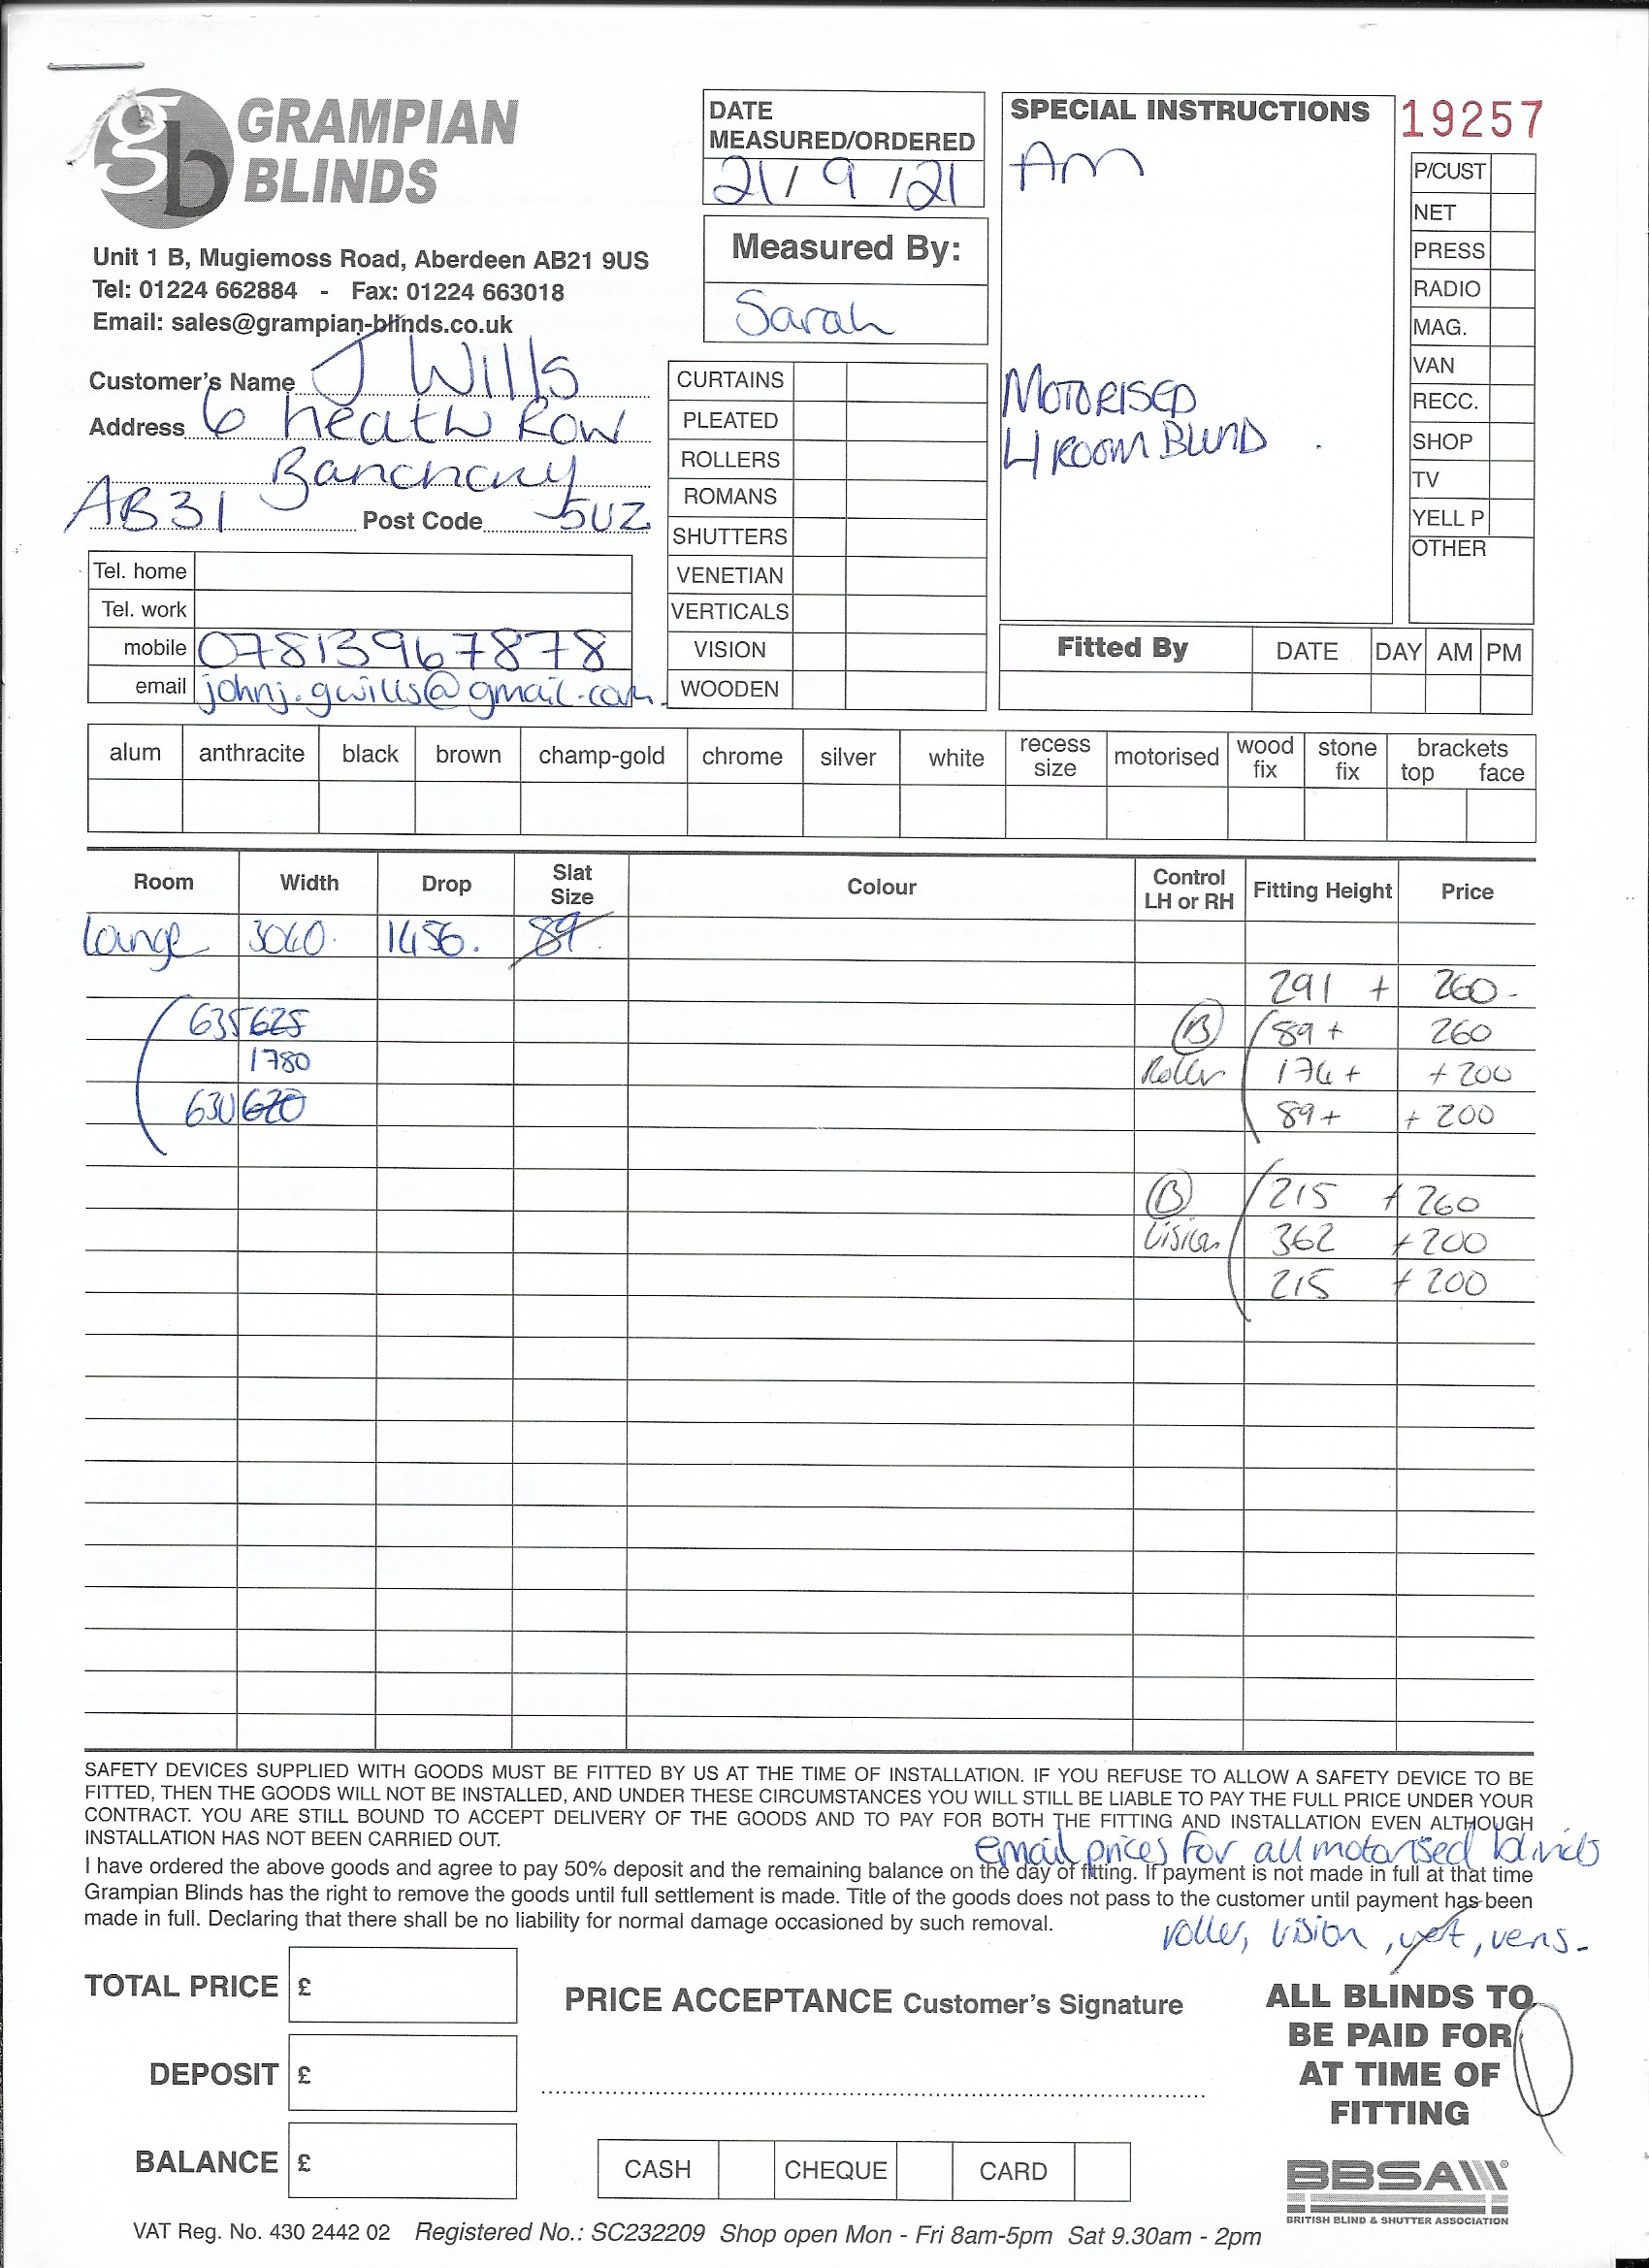 GRAMPIAN
BLINDS
Unit 1 B, Mugiemoss Road, Aberdeen AB21 9US
Tel: 01224 662884 - Fax: 01224 663018
Email: sales@grampian-blinds.co.uk
Customer's Name J Wills
Address 6 Heath Row
Banchory
AB31 Post Code 5UZ
Tel. home
Tel. work
mobile 07813967878
email johnj.gwills@gmail.com.
DATE
MEASURED/ORDERED
21/9/21
Measured By:
Sarah
CURTAINS
PLEATED
ROLLERS
ROMANS
SHUTTERS
VENETIAN
VERTICALS
VISION
WOODEN
SPECIAL INSTRUCTIONS
AM
MOTORISED
4 ROOM BLIND
19257
P/CUST
NET
PRESS
RADIO
MAG.
VAN
RECC.
SHOP
TV
YELL P
OTHER
Fitted By DATE DAY AM PM
alum anthracite black brown champ-gold chrome silver white recess size motorised wood fix stone fix brackets top face
Room Width Drop Slat Size Colour Control LH or RH Fitting Height Price
Lounge 3040. 1456. 89.
291 + 260-
635 625 B 89+ 260
1780 Roller 174+ +200
630 620 89+ +200
B 215 +260
Vision 362 +200
215 +200
SAFETY DEVICES SUPPLIED WITH GOODS MUST BE FITTED BY US AT THE TIME OF INSTALLATION. IF YOU REFUSE TO ALLOW A SAFETY DEVICE TO BE
FITTED, THEN THE GOODS WILL NOT BE INSTALLED, AND UNDER THESE CIRCUMSTANCES YOU WILL STILL BE LIABLE TO PAY THE FULL PRICE UNDER YOUR
CONTRACT. YOU ARE STILL BOUND TO ACCEPT DELIVERY OF THE GOODS AND TO PAY FOR BOTH THE FITTING AND INSTALLATION EVEN ALTHOUGH
INSTALLATION HAS NOT BEEN CARRIED OUT.
email prices for all motorised blinds
I have ordered the above goods and agree to pay 50% deposit and the remaining balance on the day of fitting. If payment is not made in full at that time
Grampian Blinds has the right to remove the goods until full settlement is made. Title of the goods does not pass to the customer until payment has been
made in full. Declaring that there shall be no liability for normal damage occasioned by such removal.
roller, vision, vert, vens-
TOTAL PRICE £
DEPOSIT £
BALANCE £
PRICE ACCEPTANCE Customer's Signature
CASH CHEQUE CARD
ALL BLINDS TO
BE PAID FOR
AT TIME OF
FITTING
BBSA
BRITISH BLIND & SHUTTER ASSOCIATION
VAT Reg. No. 430 2442 02 Registered No.: SC232209 Shop open Mon - Fri 8am-5pm Sat 9.30am - 2pm